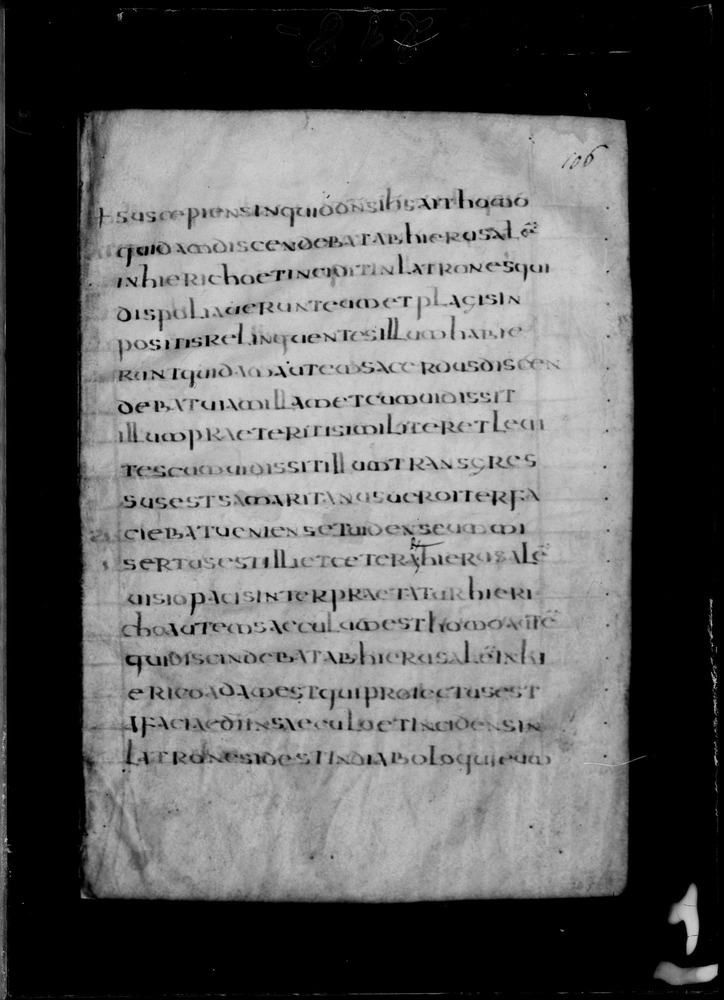 106
suscepiensinquidonsihsaithomo
quidamdiscendebatabhierusalē
inhierichoetinciditinlatronesqui
dispuliauerunteumetplagisin
positisrelinquentesillumhabie
runtquidamautemsacerdusdiscen
debatuiamillametcumuidissit
illumpraeteritisimiliteretleui
tescumuidissitillumtransgres
susestsamaritanusueroiterfa
ciebatueniensetuidenseummi
sertusestilliet cetera hierusalē
uisiopacisinterpraetaturhieri
choautemsaeculumesthomoautē
quidiscindebatabhierusalēinhi
ericoadamestquiproiectusest
afaciaediinsaeculoetincidensin
latronesidestindiaboloquieum